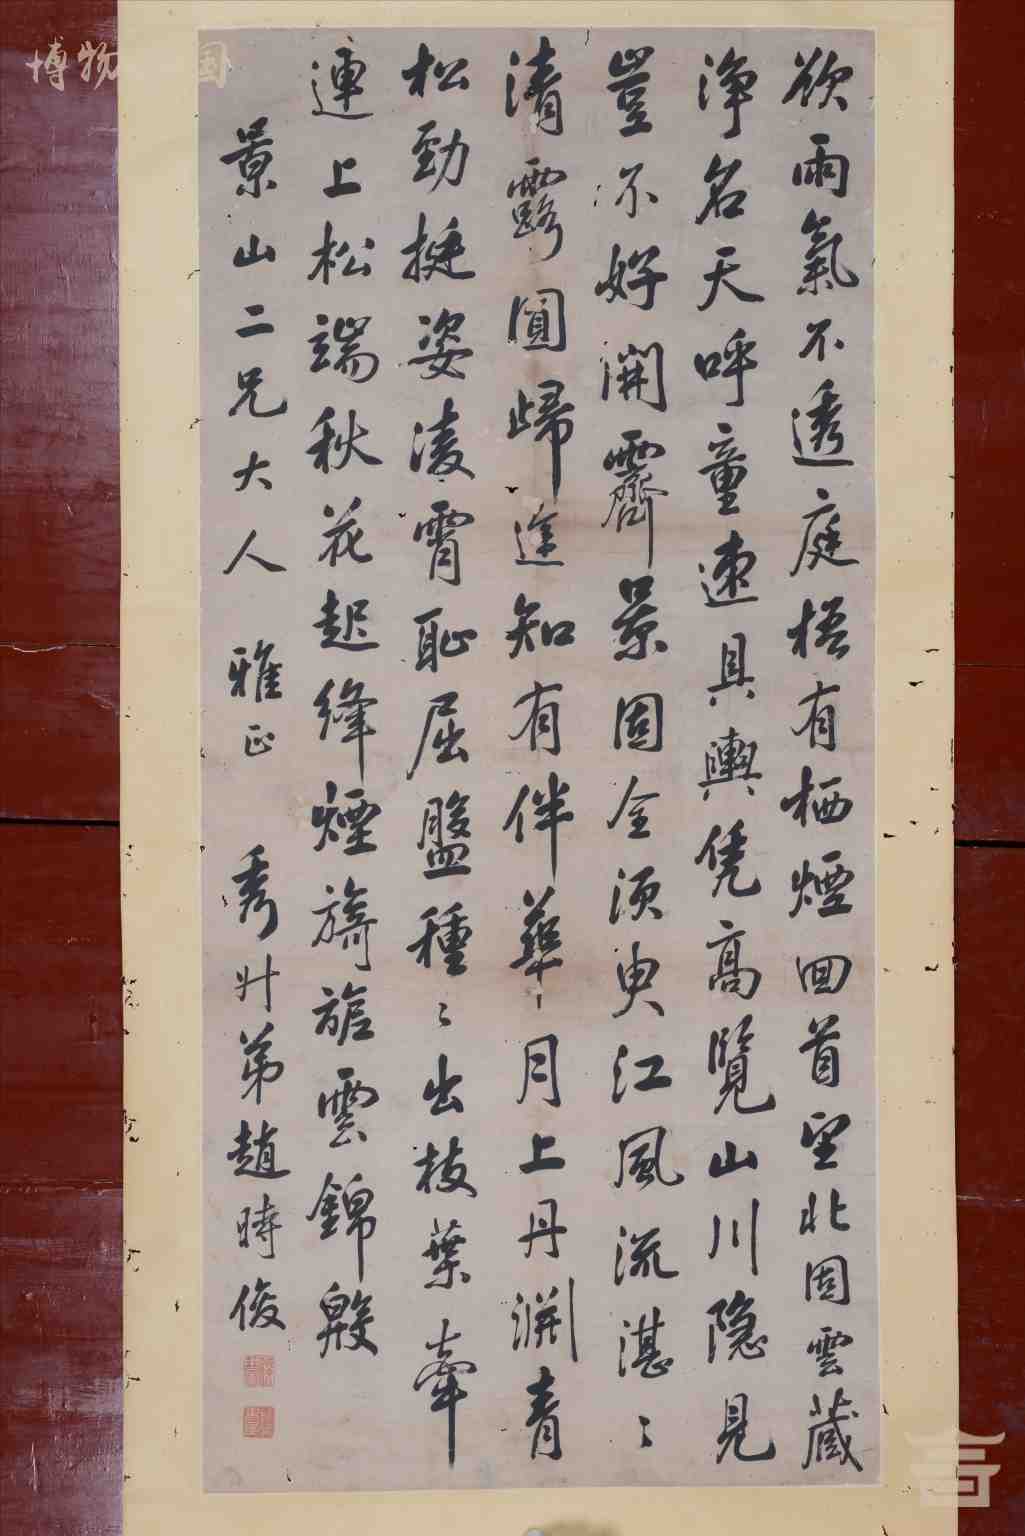 欲雨氣不透庭梧有栖煙回首望北固雲藏
淨名天呼童速具輿凭高覽山川隐見
豈不好開霽景固全須臾江風流湛〻
清露圓歸途知有伴華月上丹淵青
松勁挺姿凌霄恥屈盤種〻出枝葉牽
連上松端秋花起絳煙旖旎雲錦殷
景山二兄大人 雅正 秀升弟趙時俊
博物 国